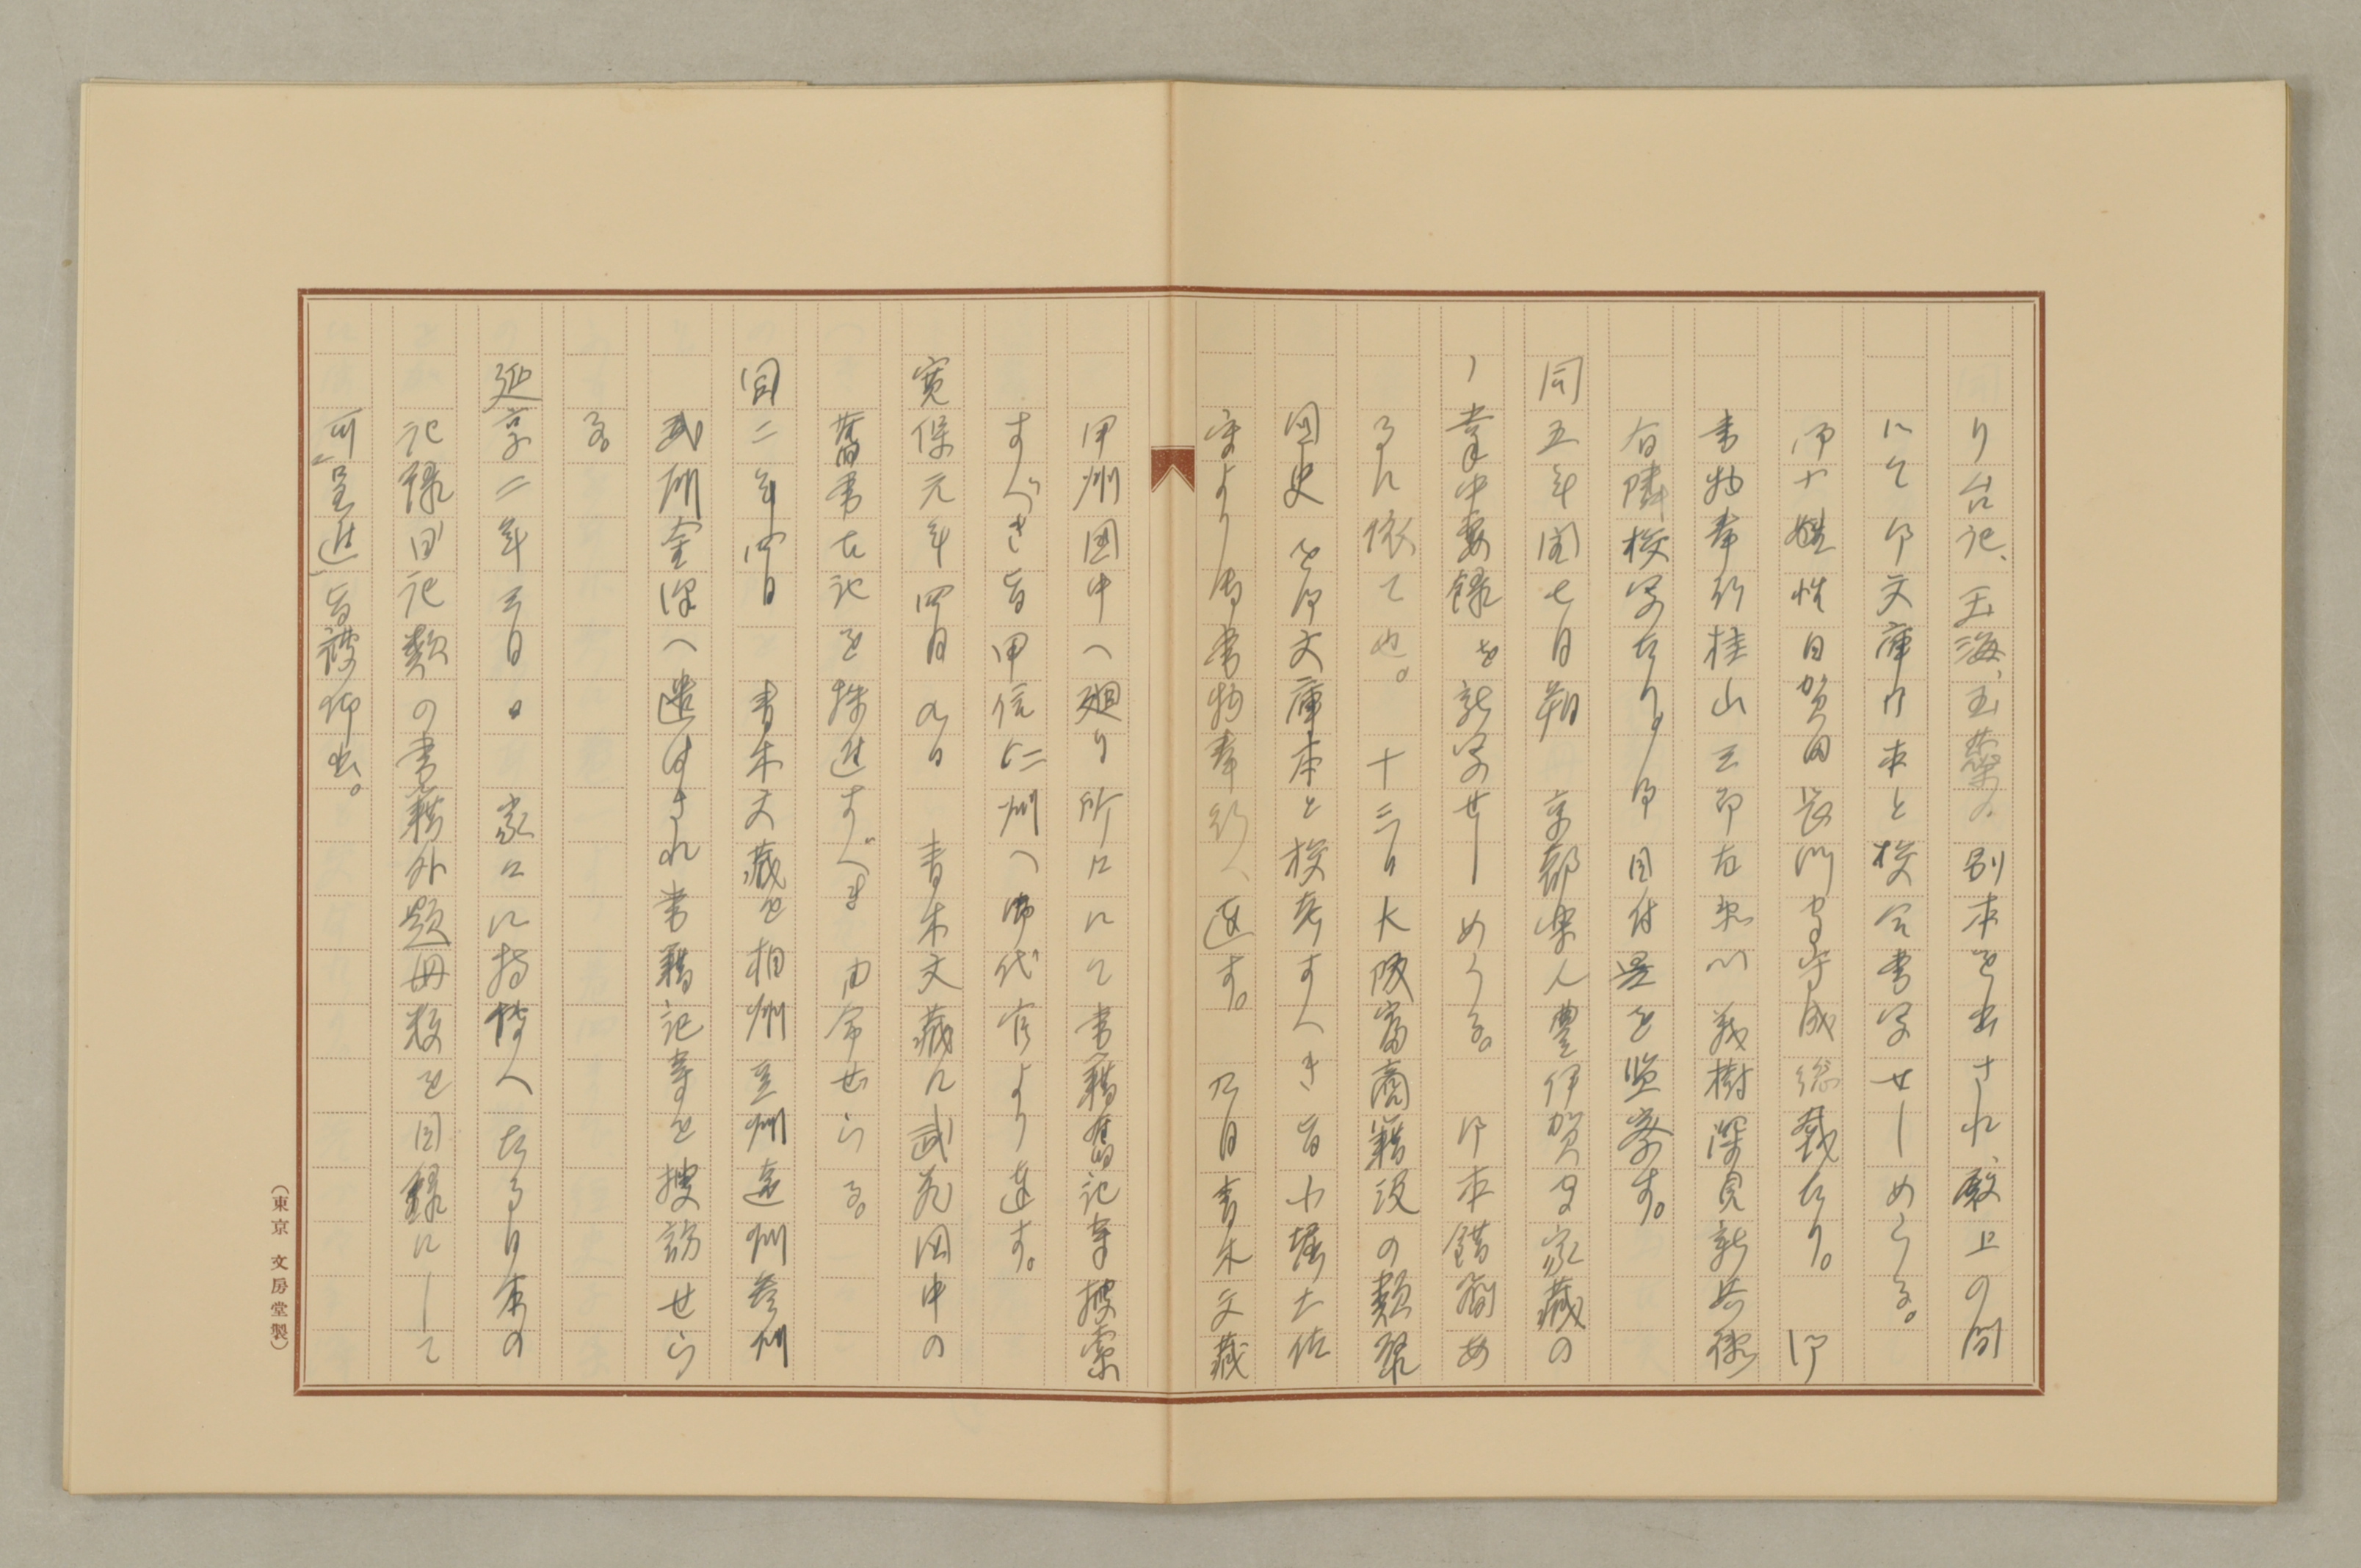 り台記、玉海、玉蘂の別本を出され、殿上の間
にて御文庫の本と校合書写せしめらる。
御小姓 日賀田長門守守咸総裁たり。御
書物奉行桂山三郎左衛門義樹深見新兵衛
有隣校写たり。御目付畳を監察す。
同五年閏七月朔 京都楽人豊伊賀守家蔵の
掌中要録を新写せしめらる。御本錯簡あ
るに依て也。 十三日大阪富商籍没の類聚
国史を御文庫本と校考すべき旨小堀土佐
守より御書物奉行へ達す。 九月青木文蔵
甲州国中へ廻り所々にて書籍旧記等捜索
すべき旨甲信二州へ御代官より達す。
寛保元年四月九日 青木文蔵に武蔵国中の
舊書古記を採進すべき由命せらる。
同二年四月 青木文蔵を相州豆州遠州参州
武州金沢へ遣はされ書籍記等を捜訪せら
る。
延享二年三月。 家々に持傳へたる日本の
記録日記類の書籍外題冊数を目録にして
可呈進旨被仰出。
(東京 文房堂製)